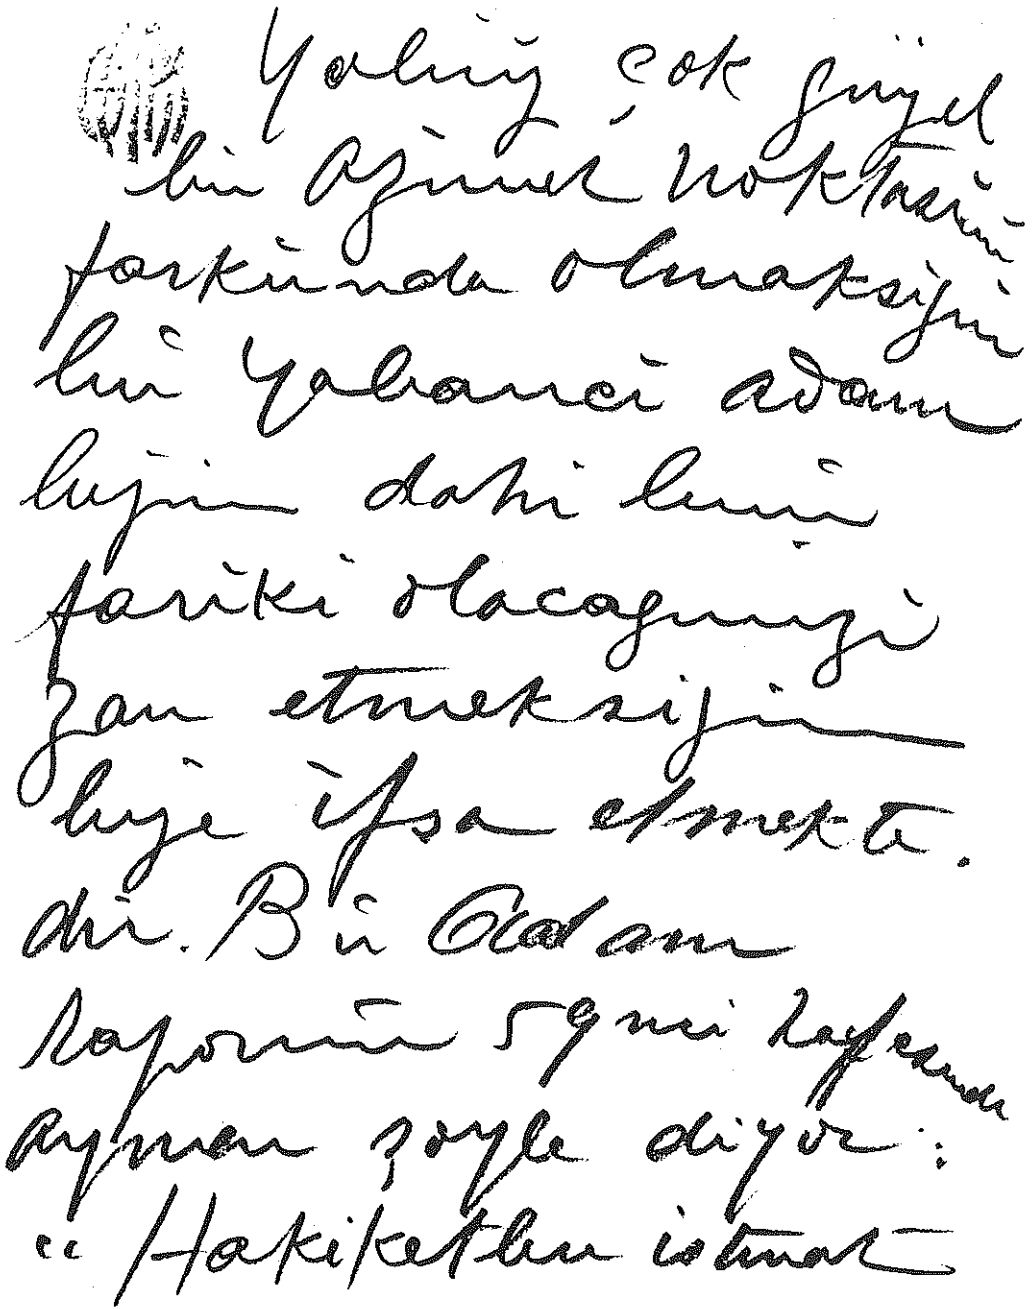 Yalnız çok güzel
bir azimet noktasının
farkında olmaksızın
bir yabancı adam
bizim dahi bunun
fariki olacağımızı
zan etmeksizin
bize ifşa etmekte.
dir. Bu adam
raporun 59 ncu sayfasında
aynen şöyle diyor:
"Hakiketbu istinat